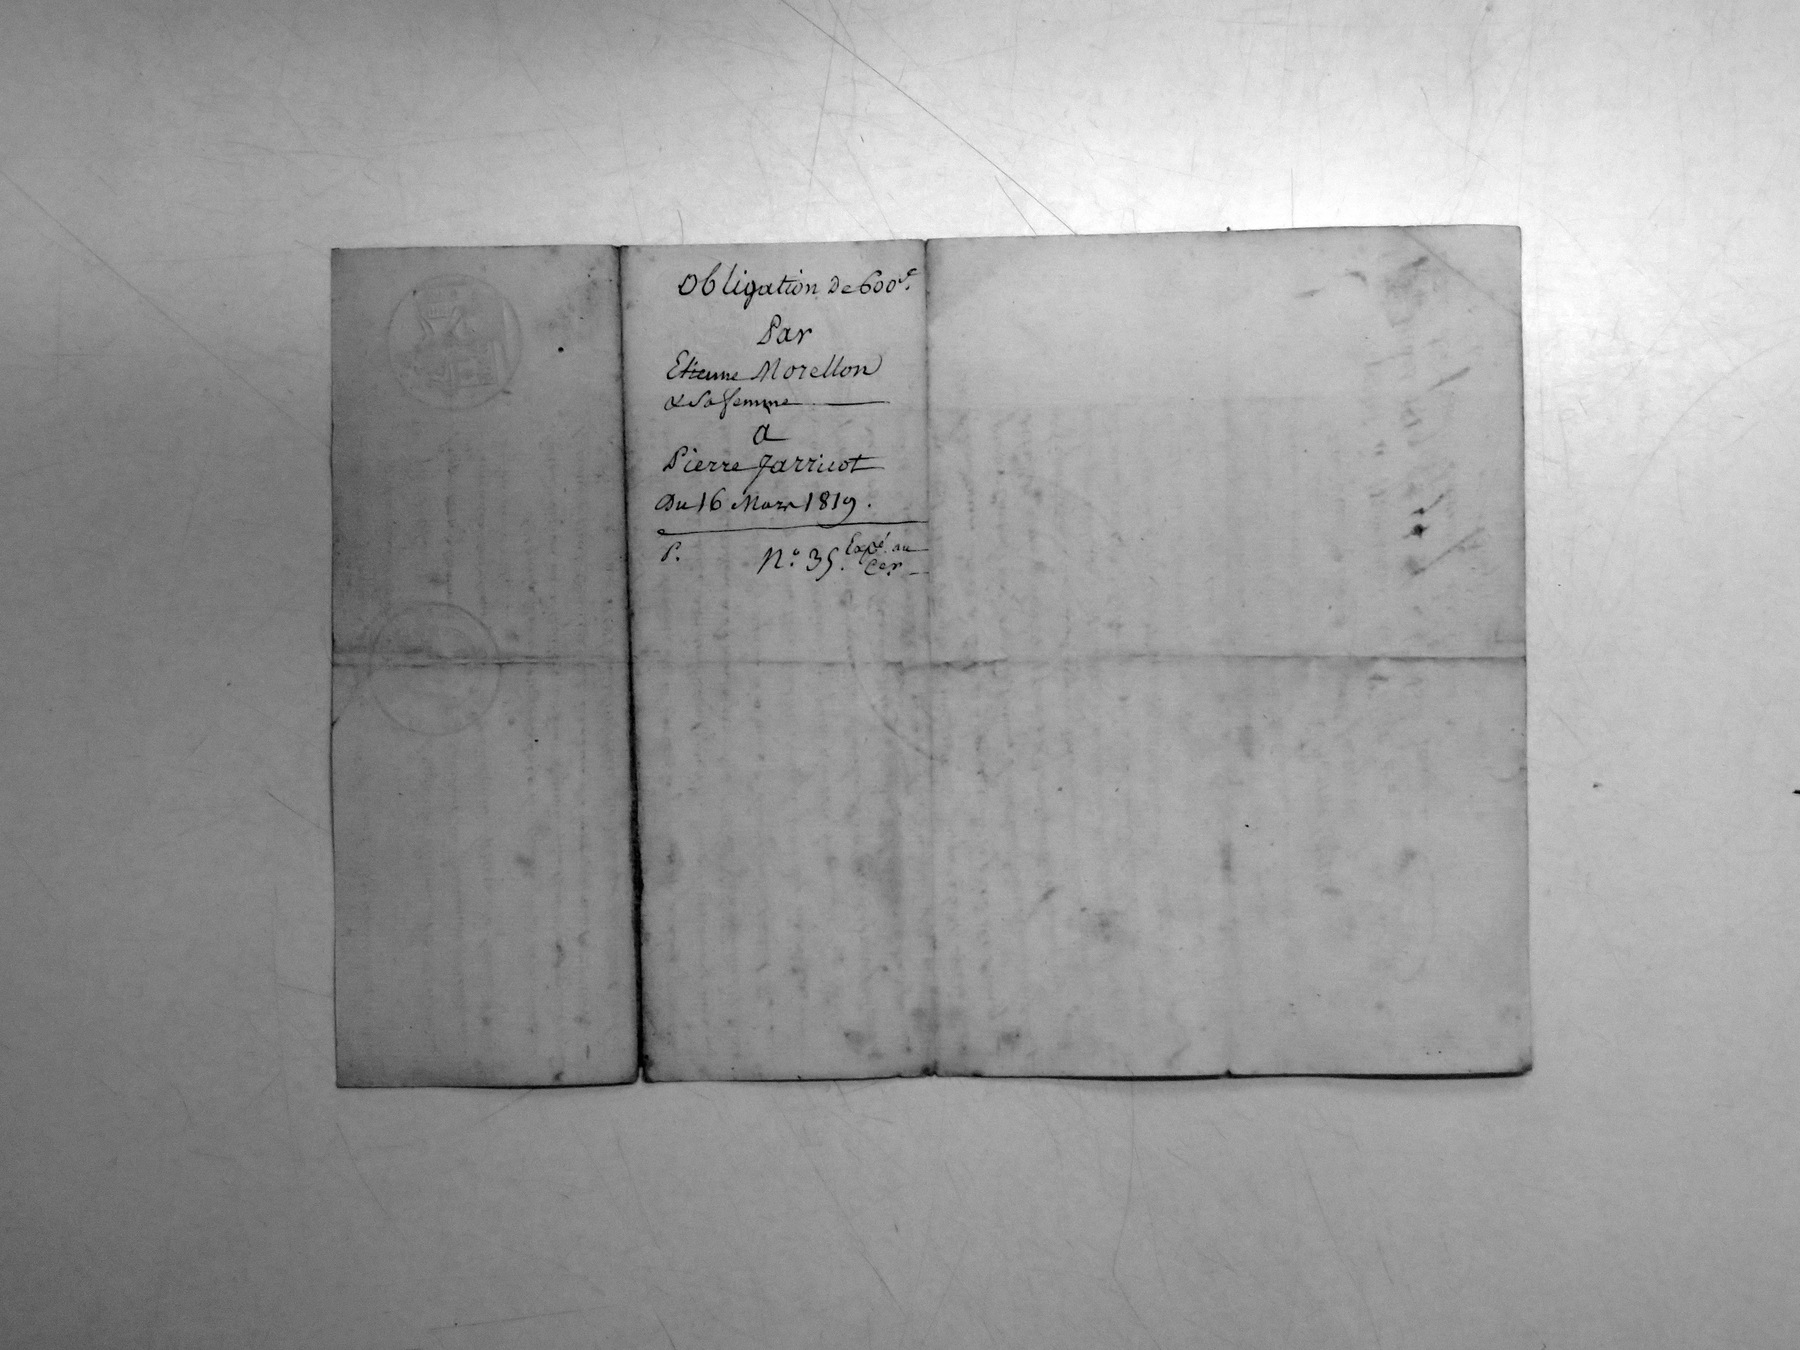 Obligation De 600f.
Par
Etienne Morellon
& Sa femme
a
Pierre Jarricot
Du 16 Mars 1819.
P. N.º 35. Expé. au
Cer.